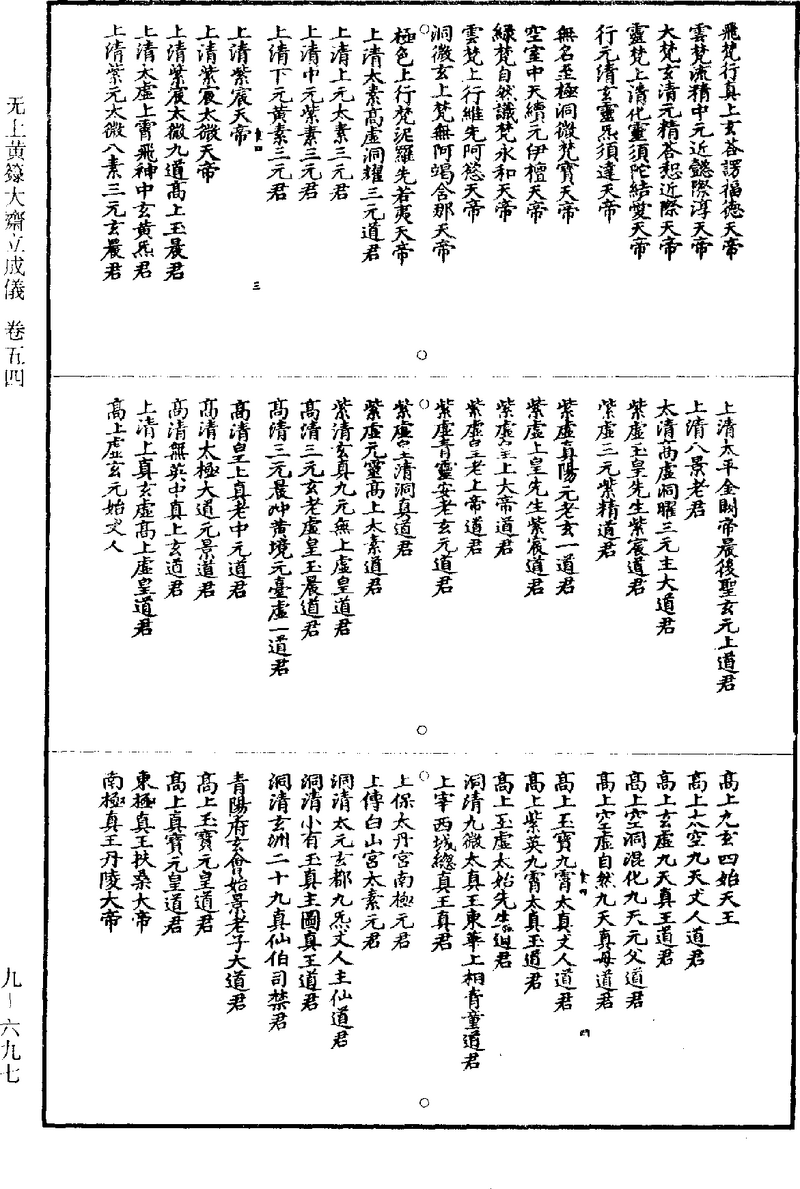 飛梵行真上玄荅謣福德天帝
雲梵流精中元近懿際淳天帝
大梵玄清元精荅恕近際天帝
靈梵上清化靈須陀結愛天帝
行元清玄靈炁須達天帝
無名至極洞微梵寶天帝
空室中天續元伊檀天帝
綠梵自然識梵永和天帝
雲梵上行維先阿㦤天帝
洞微玄上梵無阿竭含那天帝
極色上行梵泥羅先若夷天帝
上清太素髙虛洞耀三元道君
上清上元太素三元君
上清中元紫素三元君
上清下元黃素三元君
上清紫宸天帝
上清紫宸太微天帝
上清紫宸太微九道髙上玉晨君
上清太虛上霄飛神中玄黃炁君
上清紫元太微八素三元玄晨君
三
上清太平金闕帝晨後聖玄元上道君
上清八景老君
太清髙虛洞曜三元主大道君
紫虛玉皇先生紫宸道君
紫虛三元紫精道君
紫虛真陽元老玄一道君
紫虛上皇先生紫宸道君
紫虛皇上大帝道君
紫虛皇老上帝道君
紫虛青靈安老玄元道君
紫虛皇清洞真道君
紫虛元靈髙上太素道君
紫清玄真九元無上虛皇道君
髙清三元玄老虛皇玉晨道君
髙清三元晨冲黃境元臺虛一道君
髙清皇上真老中元道君
髙清太極大道元景道君
髙清無英中真上玄道君
上清上真玄虛髙上虛皇道君
髙上虛玄元始丈人
髙上九玄四始天王
髙上太空九天丈人道君
髙上玄虛九天真王道君
髙上空洞混化九天元父道君
髙上空虛自然九天真母道君
髙上玉寶九霄太真丈人道君
髙上紫英九霄太真玉道君
髙上玉虛太始先生道君
洞清九微太真王東華上相青童道君
上宰西城緫真王真君
上保太丹宮南極元君
上傅白山宮太素元君
洞清太元玄都九炁丈人主仙道君
洞清小有玉真主圖真王道君
洞清玄洲二十九真仙伯司禁君
青陽府玄會始景老子大道君
髙上玉寶元皇道君
髙上真寶元皇道君
東極真王扶桑大帝
南極真王丹陵大帝
四
无上黄籙大齋立成儀 卷五四
九－六九七